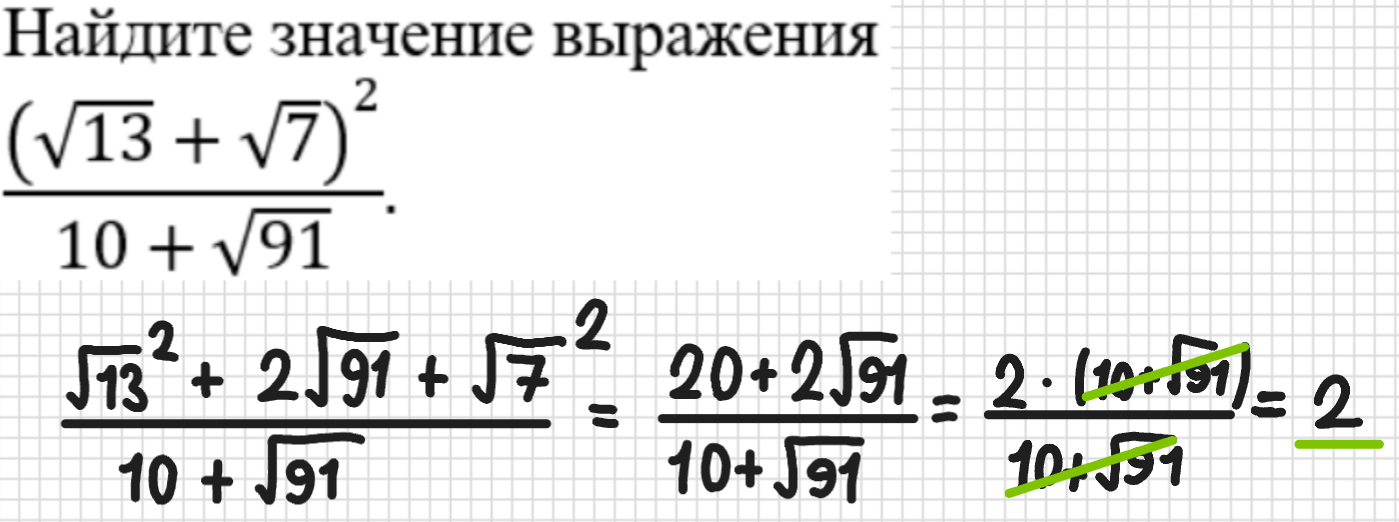 Найдите значение выражения
(√13 + √7)²
10 + √91 .
√13² + 2√91 + √7² / 10 + √91 = 20 + 2√91 / 10 + √91 = 2 · (10 + √91) / 10 + √91 = 2